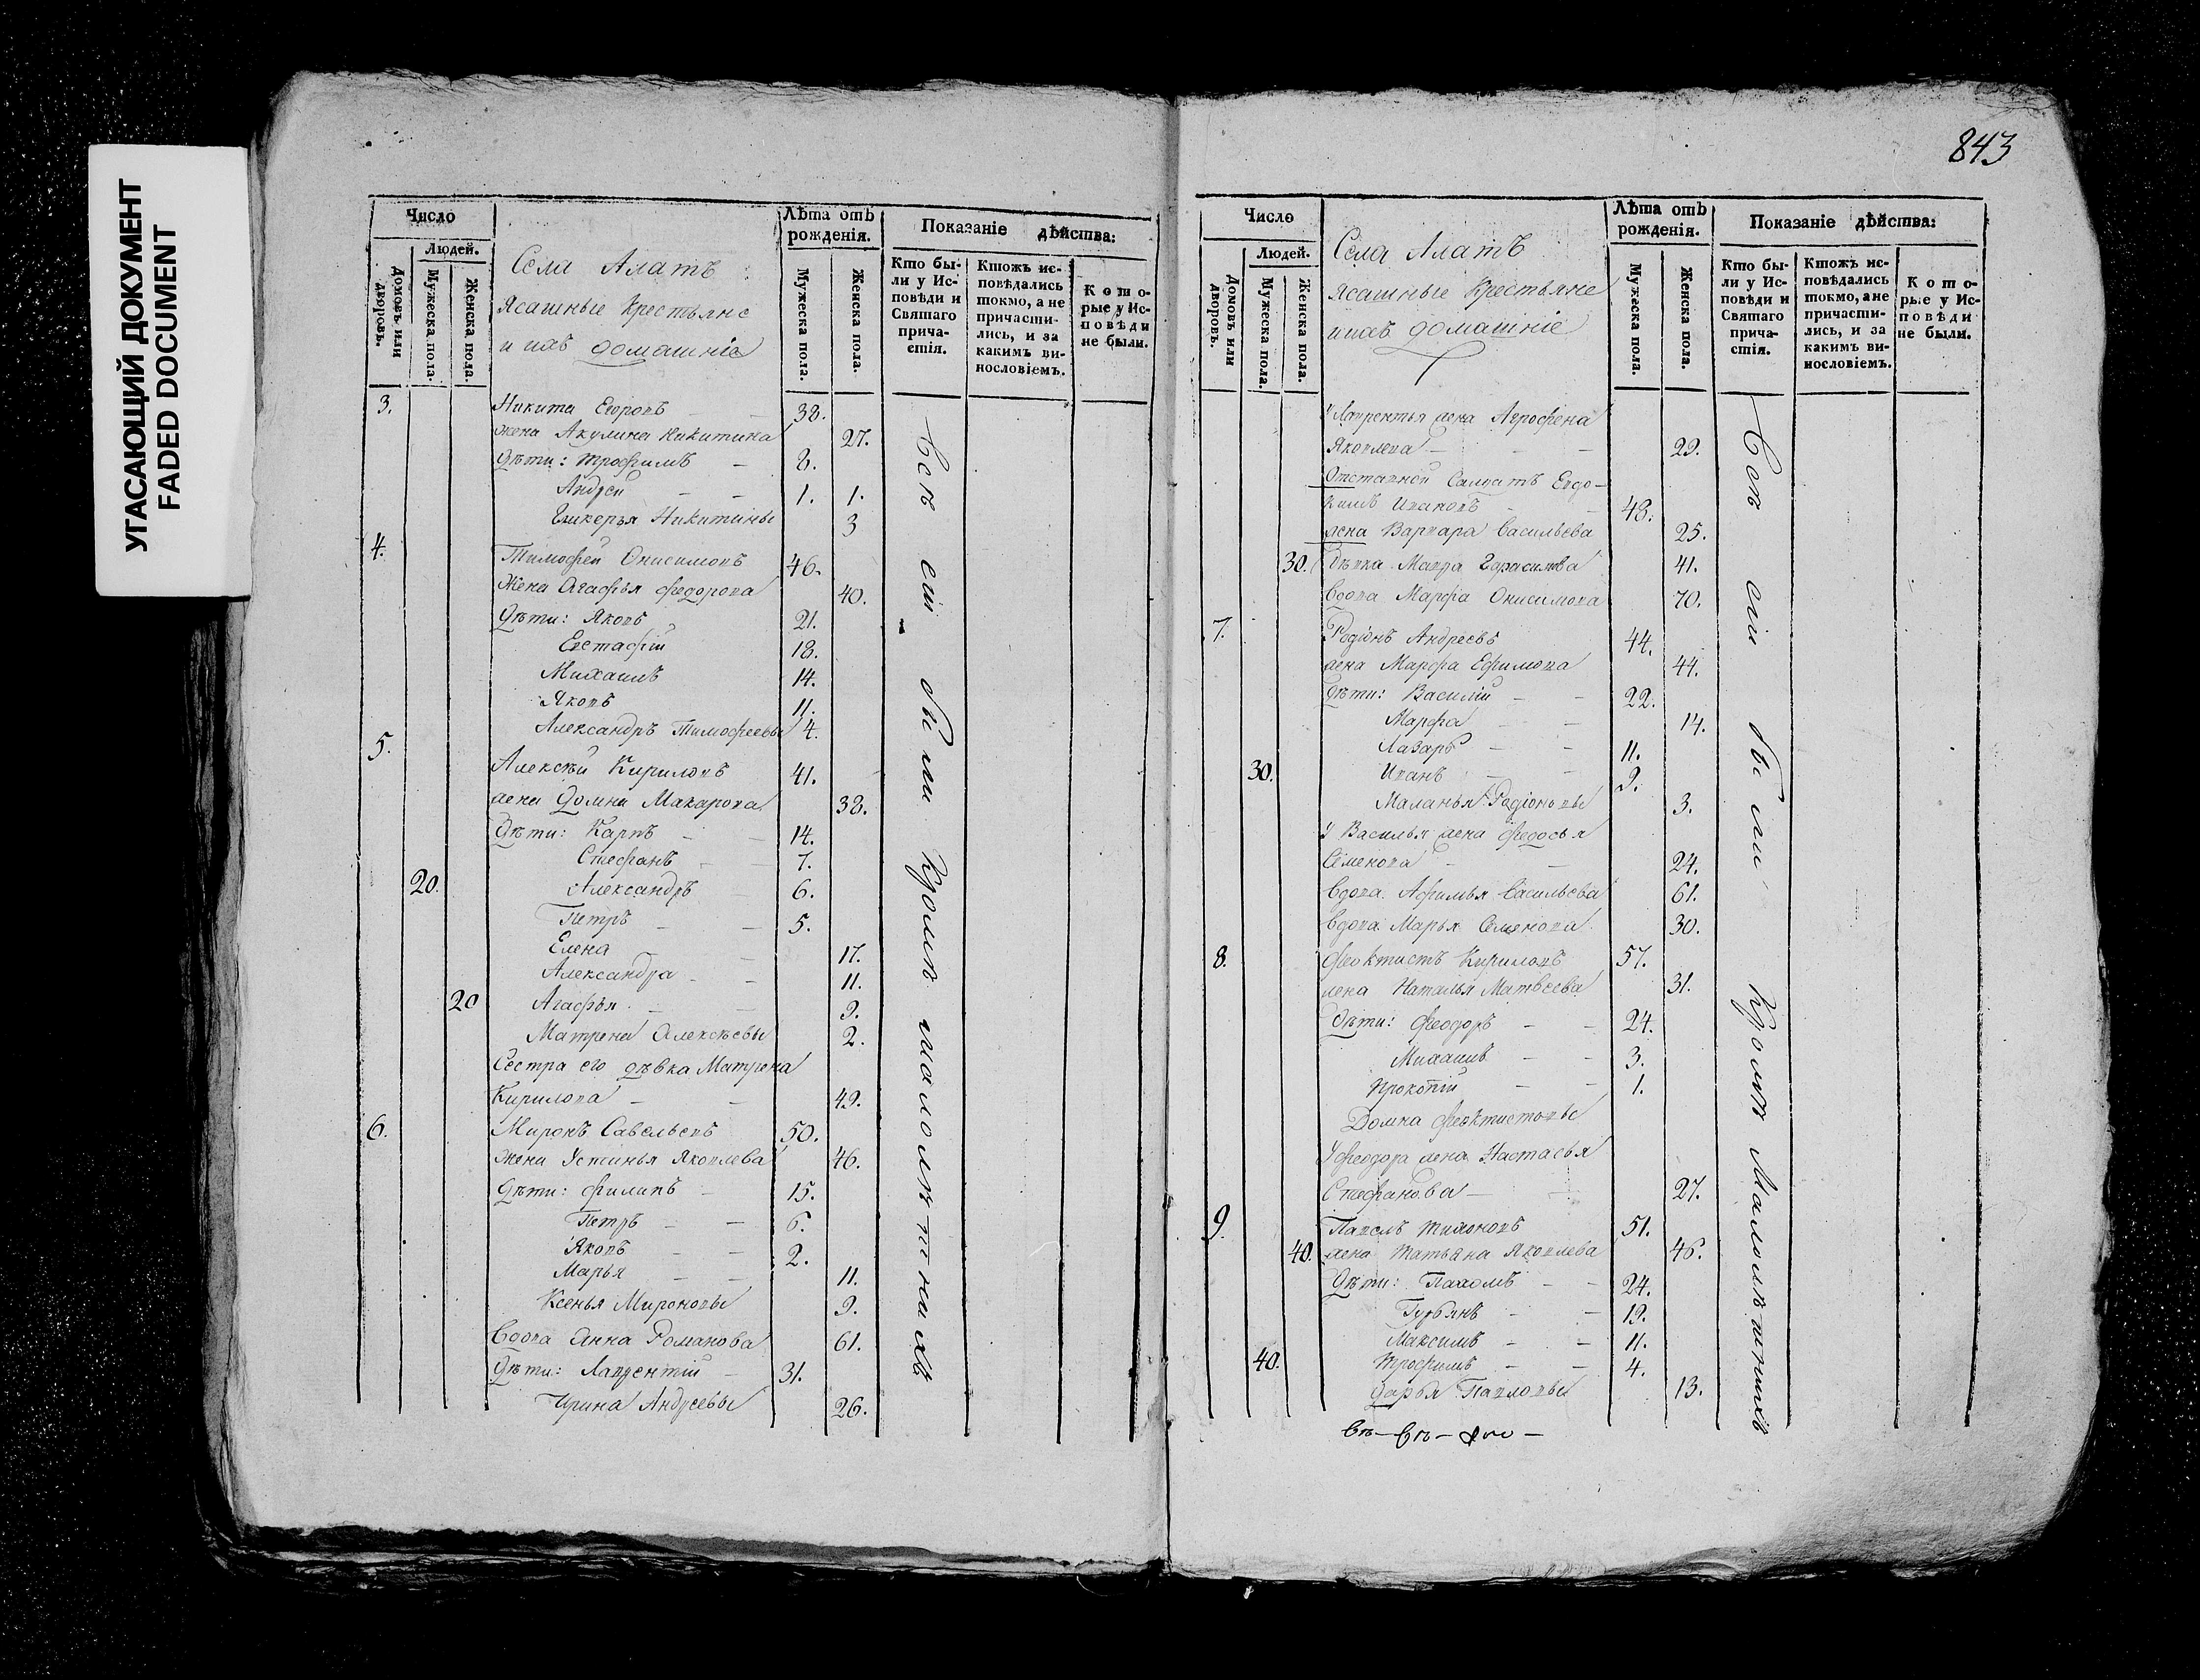 УГАСАЮЩИЙ ДОКУМЕНТ
FADED DOCUMENT
Число
Людей.
Домовъ или дворовъ.
Мужеска пола.
Женска пола.
Села Алатъ
Ясашные крестьяне
и ихъ домашніе
Лѣта отъ рожденія.
Мужеска пола.
Женска пола.
Показаніе дѣйства:
Кто бы-
ли у Ис-
повѣди и
Святаго
прича-
стія.
Ктожъ ис-
повѣдались
токмо, а не
причасти-
лись, и за
какимъ ви-
нословіемъ.
Кото-
рые у Ис-
повѣди
не были.
3. Никита Егоровъ 38.
жена Акулина Никитина 27.
Дѣти: Трофимъ 8.
Андрей 1. 1.
Гликерья Никитины 3
4. Тимофей Онисимовъ 46.
Жена Агафья Федорова 40.
Дѣти: Яковъ 21.
Евстафій 18.
Михаилъ 14.
Яковъ 11.
Александръ Тимофеевы 4.
5. Алексѣй Кириловъ 41.
жена Домна Макарова 38.
Дѣти: Карпъ 14.
Стефанъ 7.
20. Александръ 6.
Петръ 5.
Елена 17.
Александра 11.
20 Агафья 9.
Матрена Алексѣевы 2.
Сестра его дѣвка Матрена
Кирилова 49.
6. Миронъ Савельевъ 50.
жена Устинья Яковлева 46.
Дѣти: Филипъ 15.
Петръ 6.
Яковъ 2.
Марья 11.
Ксенья Мироновы 9.
Вдова Анна Романова 61.
Дѣти: Лаврентій 31.
Ирина Андреевы 26.
Всѣ сіи были кромѣ малолѣтнихъ
843
Число
Людей.
Домовъ или дворовъ.
Мужеска пола.
Женска пола.
Села Алатъ
Ясашные крестьяне
и ихъ домашніе
Лѣта отъ рожденія.
Мужеска пола.
Женска пола.
Показаніе дѣйства:
Кто бы-
ли у Ис-
повѣди и
Святаго
прича-
стія.
Ктожъ ис-
повѣдались
токмо, а не
причасти-
лись, и за
какимъ ви-
нословіемъ.
Кото-
рые у Ис-
повѣди
не были.
У Лаврентья жена Агрофена
Яковлева 29.
Отставной Салдатъ Евдо-
кимъ Ивановъ 48.
жена Варвара Васильева 25.
30. Дѣвка Мавра Гарасимова 41.
Вдова Марфа Онисимова 70.
7. Родіонъ Андреевъ 44.
жена Марфа Ефимова 44.
Дѣти: Василій 22.
Марфа 14.
Лазарь 11.
30. Иванъ 9.
Маланья Родіоновы 3.
У Василья жена Федосья
Семенова 24.
Вдова Афимья Васильева 61.
Вдова Марья Семенова 30.
8. Феоктистъ Кириловъ 57.
жена Наталья Матвеева 31.
Дѣти: Феодоръ 24.
Михаилъ 3.
Прокопій 1.
Домна Феоктистовы
У Феодора жена Настасья
Стефанова 27.
9. Павелъ Тихоновъ 51.
40. жена Татьяна Яковлева 46.
Дѣти: Пахомъ 24.
Гурьянъ 19.
Максимъ 11.
40. Трофимъ 4.
Дарья Павловы 13.
Всѣ сіи были кромѣ Малолѣтнихъ